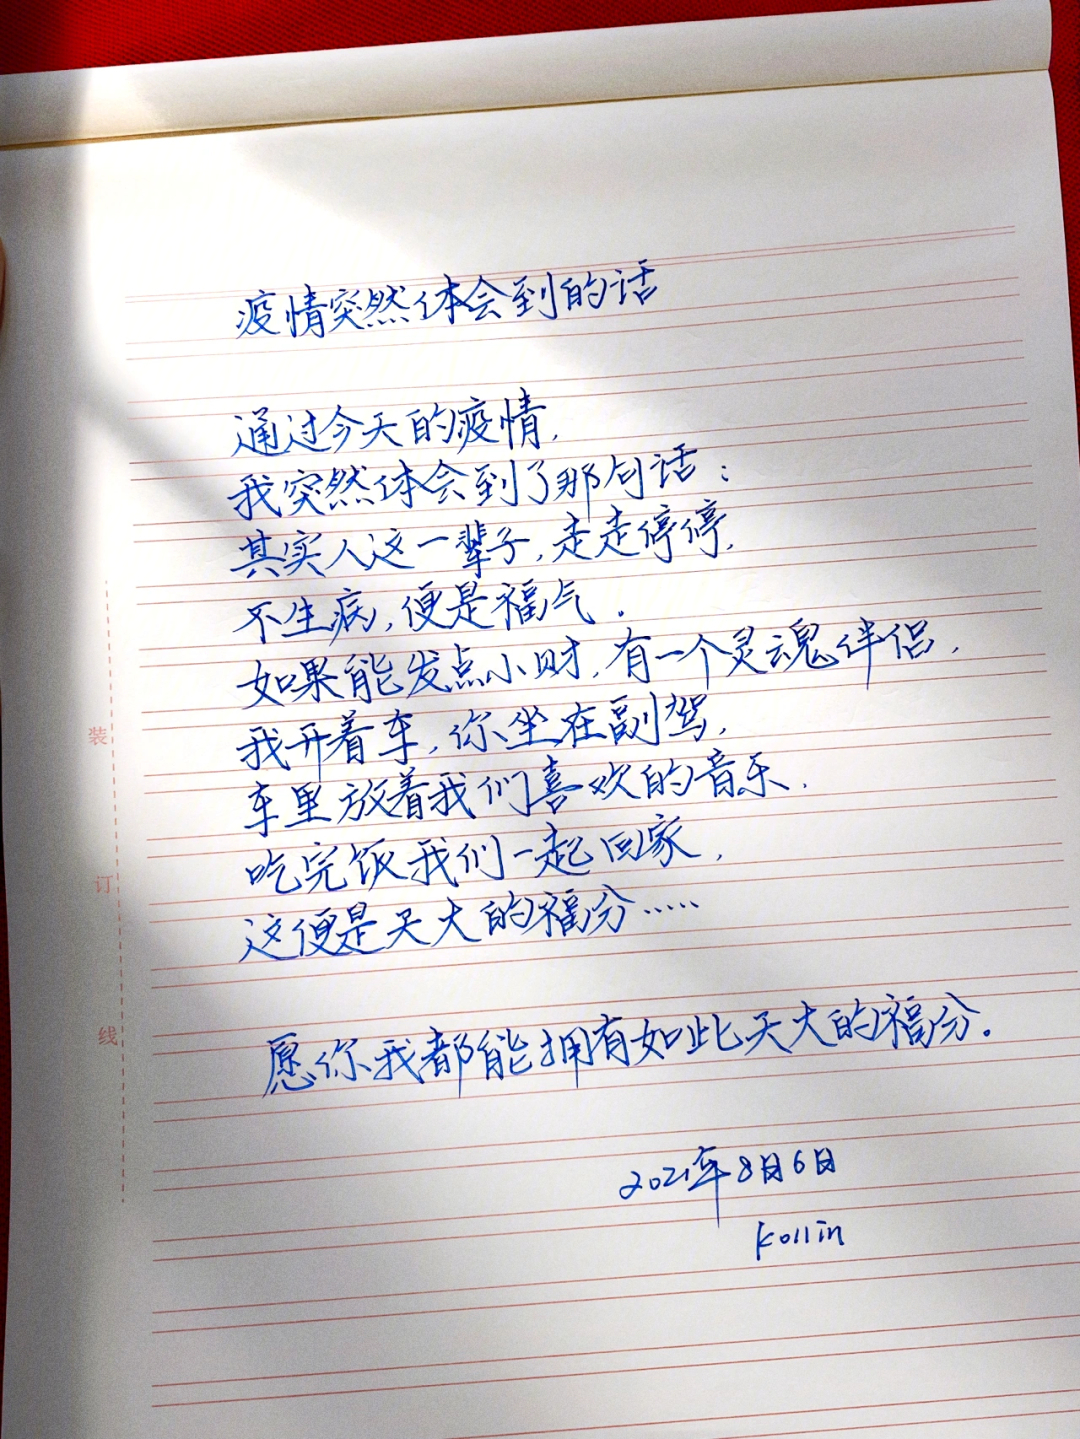 疫情突然体会到的话
通过今天的疫情,
我突然体会到了那句话:
其实人这一辈子,走走停停,
不生病,便是福气.
如果能发点小财,有一个灵魂伴侣,
我开着车,你坐在副驾,
车里放着我们喜欢的音乐,
吃完饭我们一起回家,
这便是天大的福分……
愿你我都能拥有如此天大的福分。
2021年8月6日
kollin
装
订
线